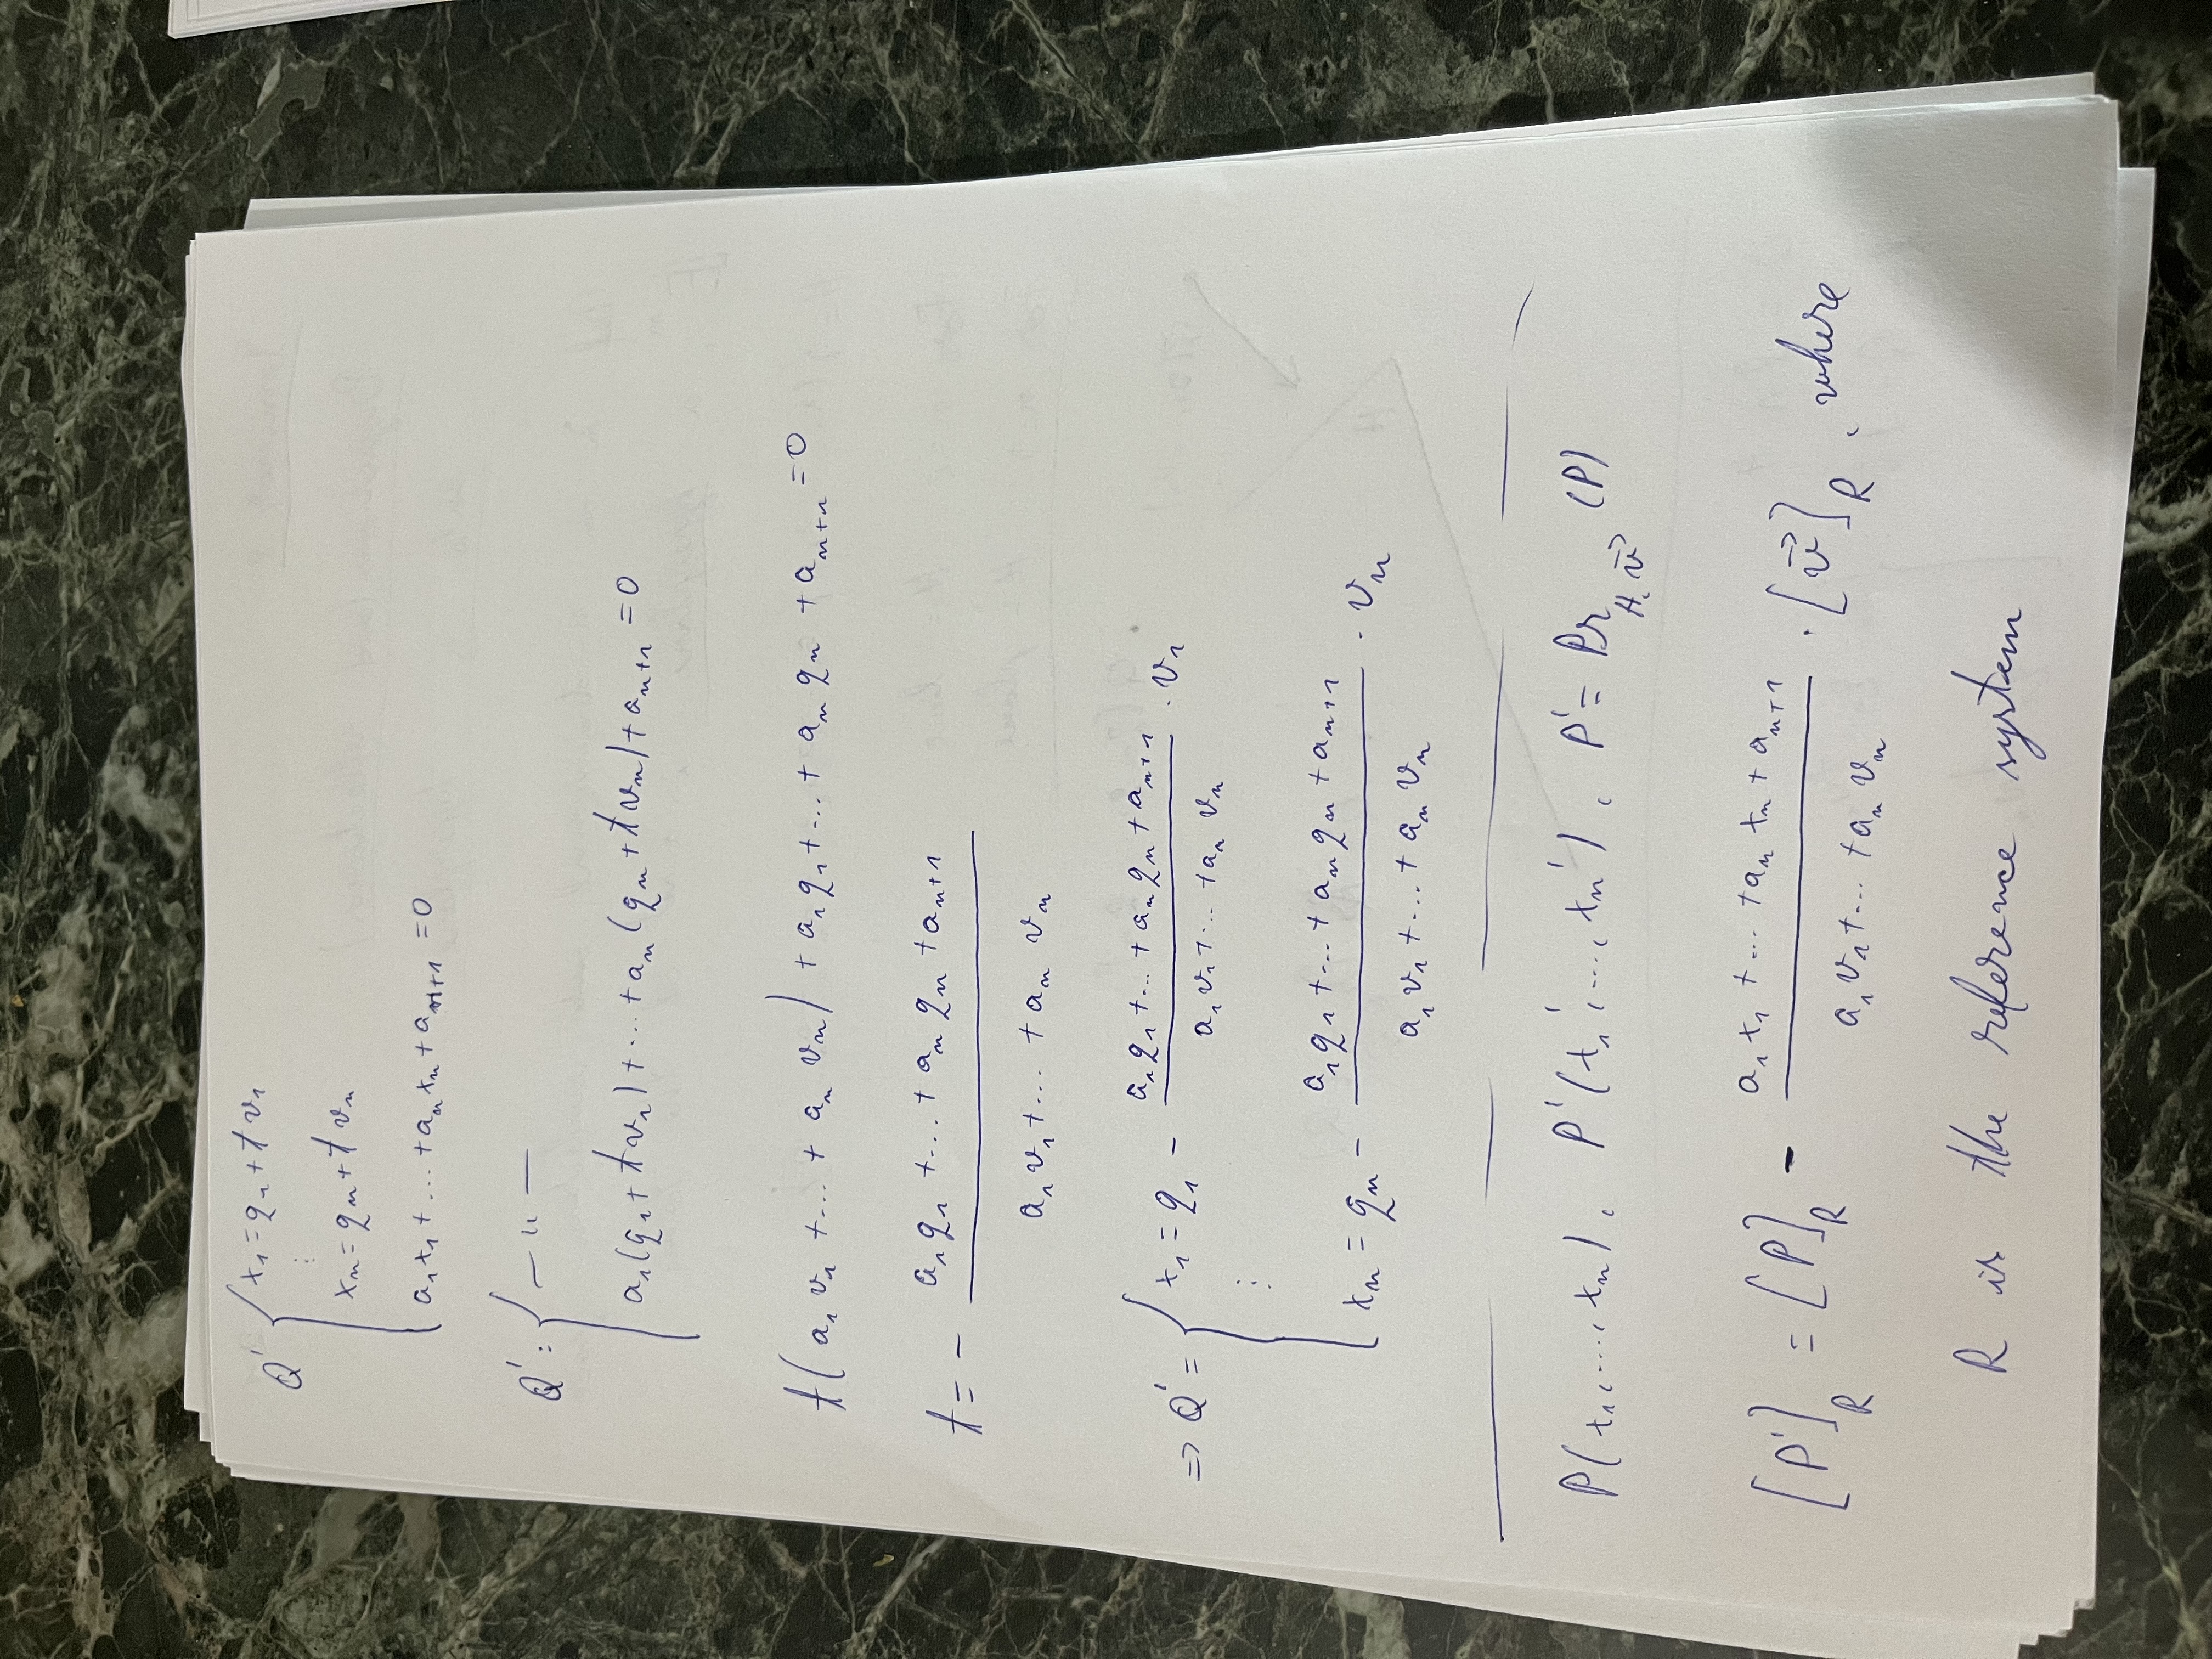 Q' { x₁ = q₁ + t v₁
⋮
xₙ = qₙ + t vₙ
a₁x₁ + ... + aₙxₙ + aₙ₊₁ = 0
Q' : { — " —
a₁(q₁ + t v₁) + ... + aₙ(qₙ + t vₙ) + aₙ₊₁ = 0
t(a₁v₁ + ... + aₙvₙ) + a₁q₁ + ... + aₙqₙ + aₙ₊₁ = 0
t = - (a₁q₁ + ... + aₙqₙ + aₙ₊₁) / (a₁v₁ + ... + aₙvₙ)
=> Q' = { x₁ = q₁ - (a₁q₁ + ... + aₙqₙ + aₙ₊₁) / (a₁v₁ + ... + aₙvₙ) · v₁
⋮
xₙ = qₙ - (a₁q₁ + ... + aₙqₙ + aₙ₊₁) / (a₁v₁ + ... + aₙvₙ) · vₙ
P(x₁, ..., xₙ), P'(x₁', ..., xₙ'), P' = Pr_{H, v⃗} (P)
[P']_R = [P]_R - (a₁x₁ + ... + aₙxₙ + aₙ₊₁) / (a₁v₁ + ... + aₙvₙ) · [v⃗]_R, where
R is the reference system